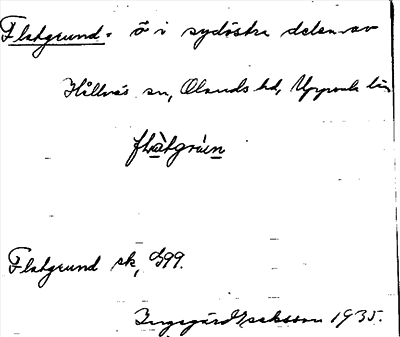 Flatgrund. ö i sydöstra delen av
Hållnäs sn, Olands hd, Uppsala län
flàtgrùn
Flatgrund sk, G99.
Ingegärd Isaksson 1935.